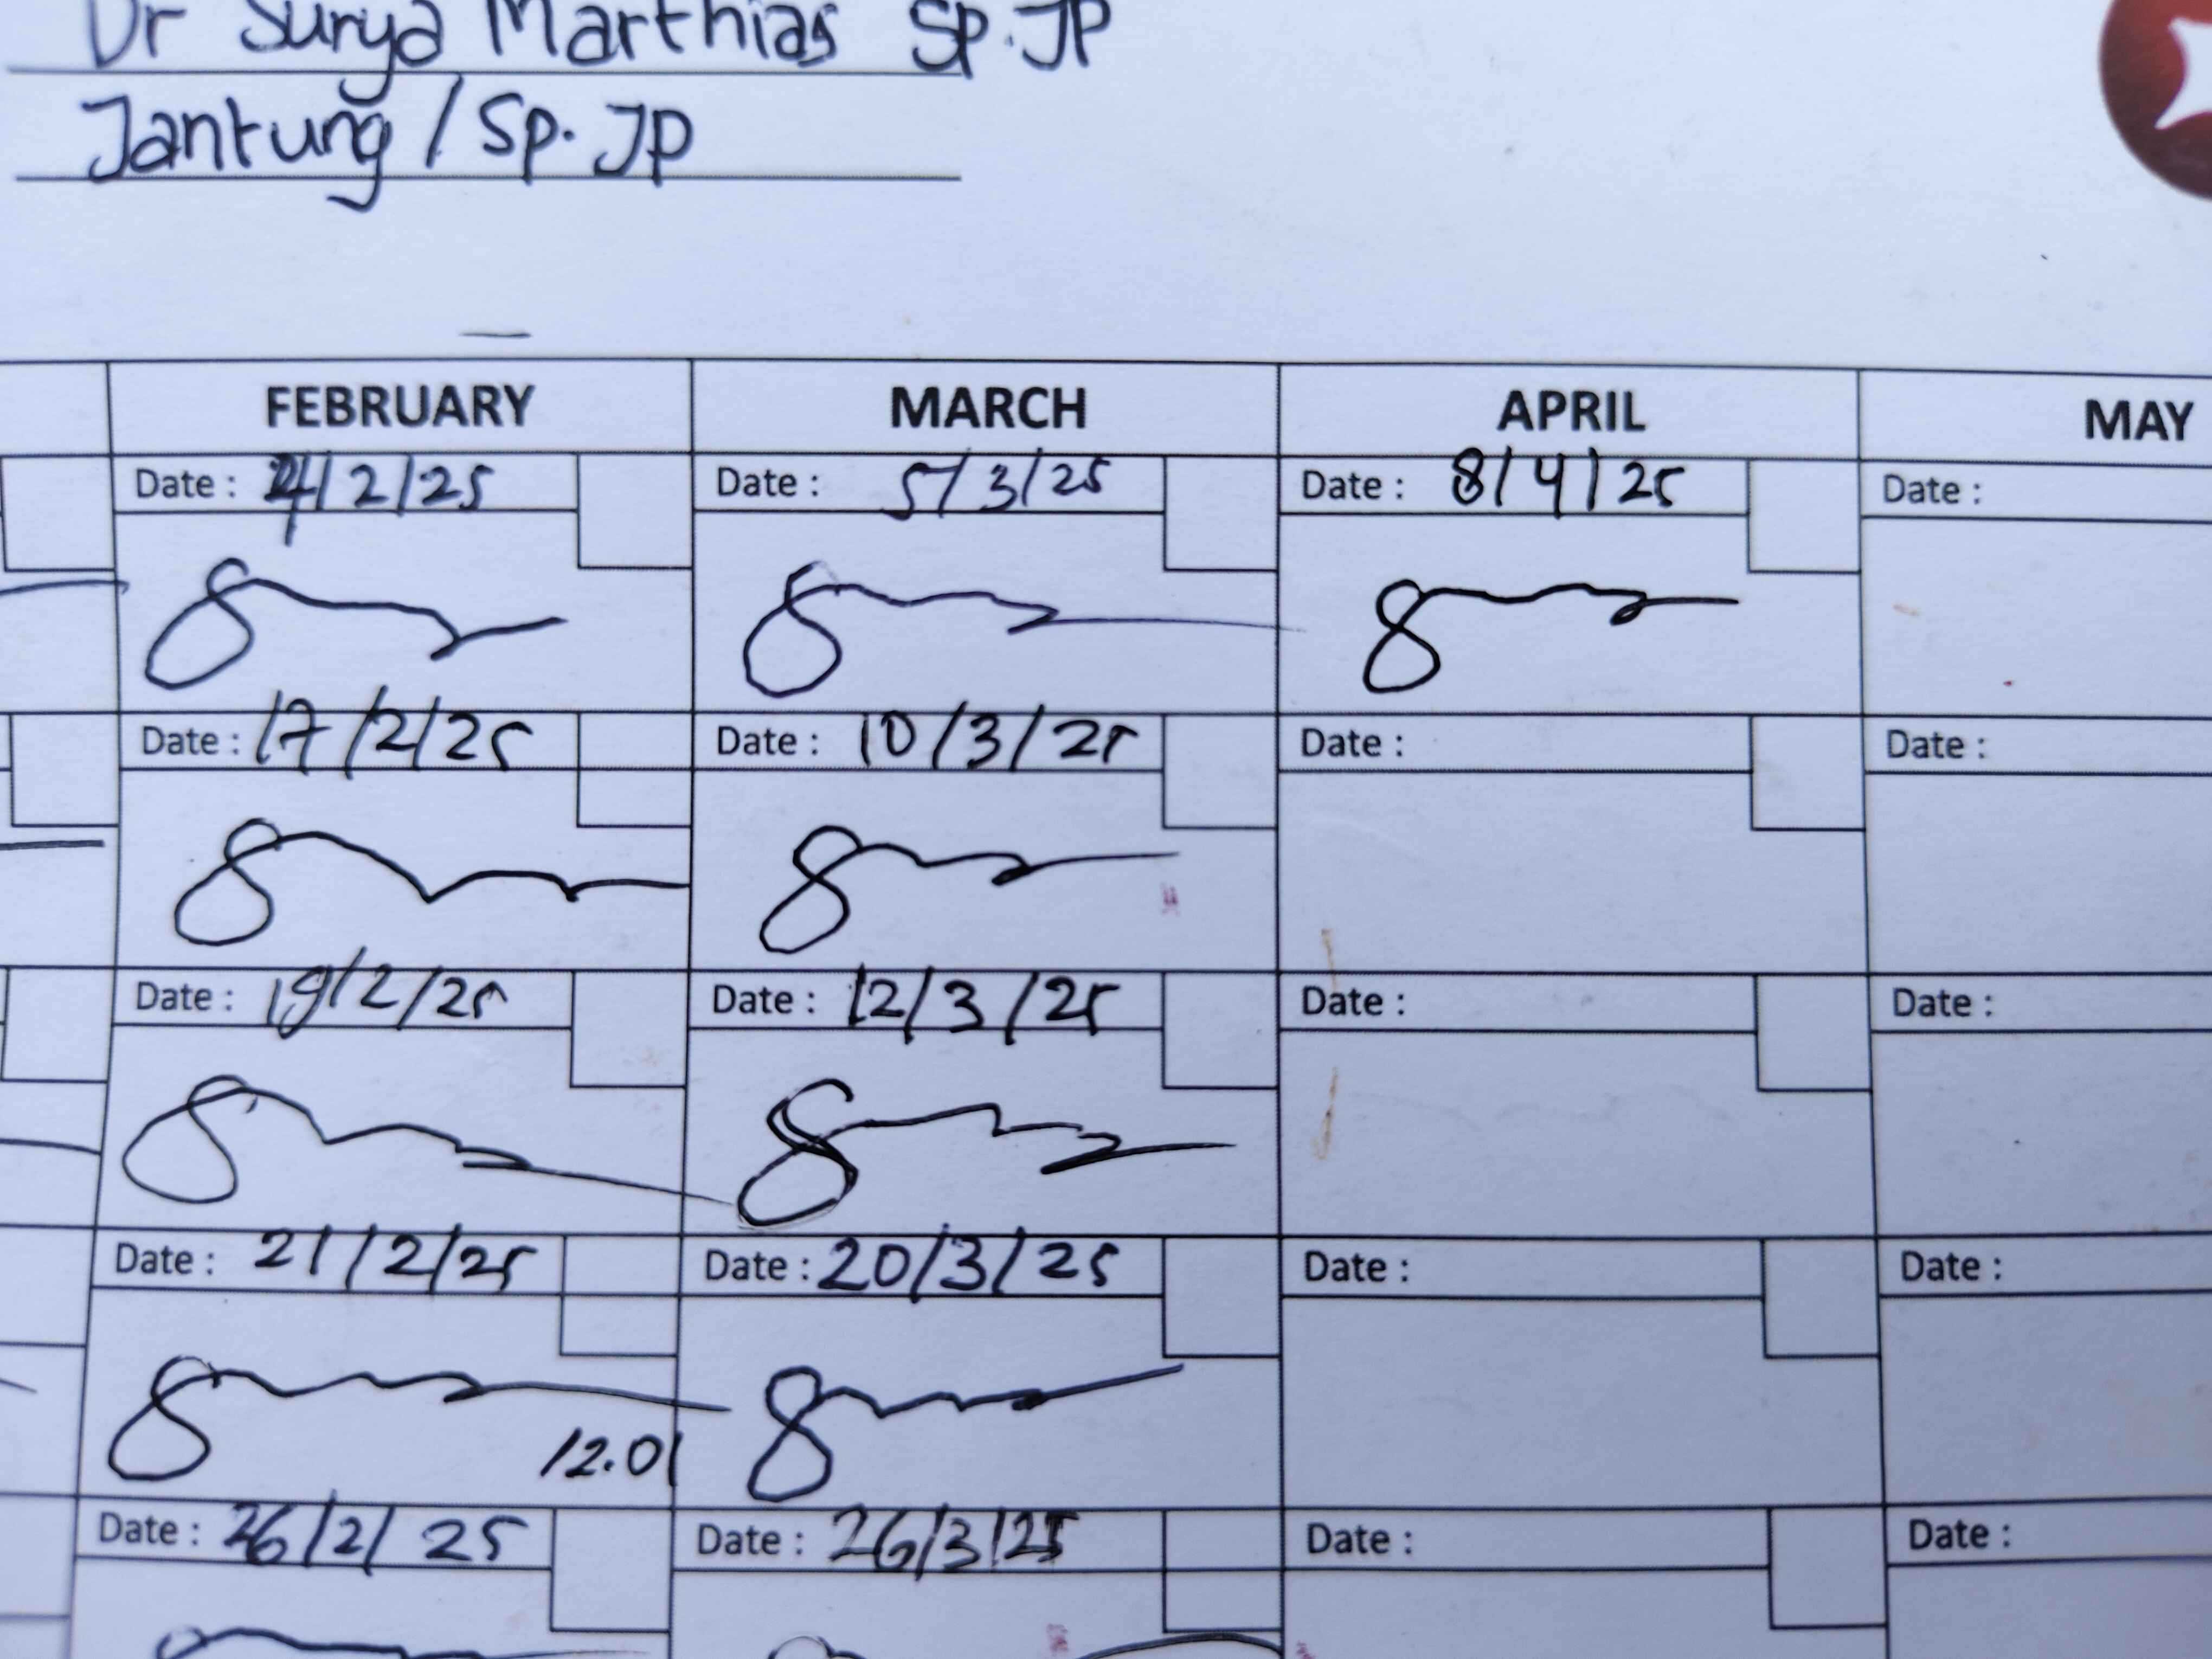 Dr Surya Marthias Sp.JP
Jantung / Sp. JP
FEBRUARY MARCH APRIL MAY
Date : 4/2/25 Date : 5/3/25 Date : 8/4/25 Date :
Date : 17/2/25 Date : 10/3/25 Date : Date :
Date : 19/2/25 Date : 12/3/25 Date : Date :
Date : 21/2/25 Date : 20/3/25 Date : Date :
12.01
Date : 26/2/25 Date : 26/3/25 Date : Date :